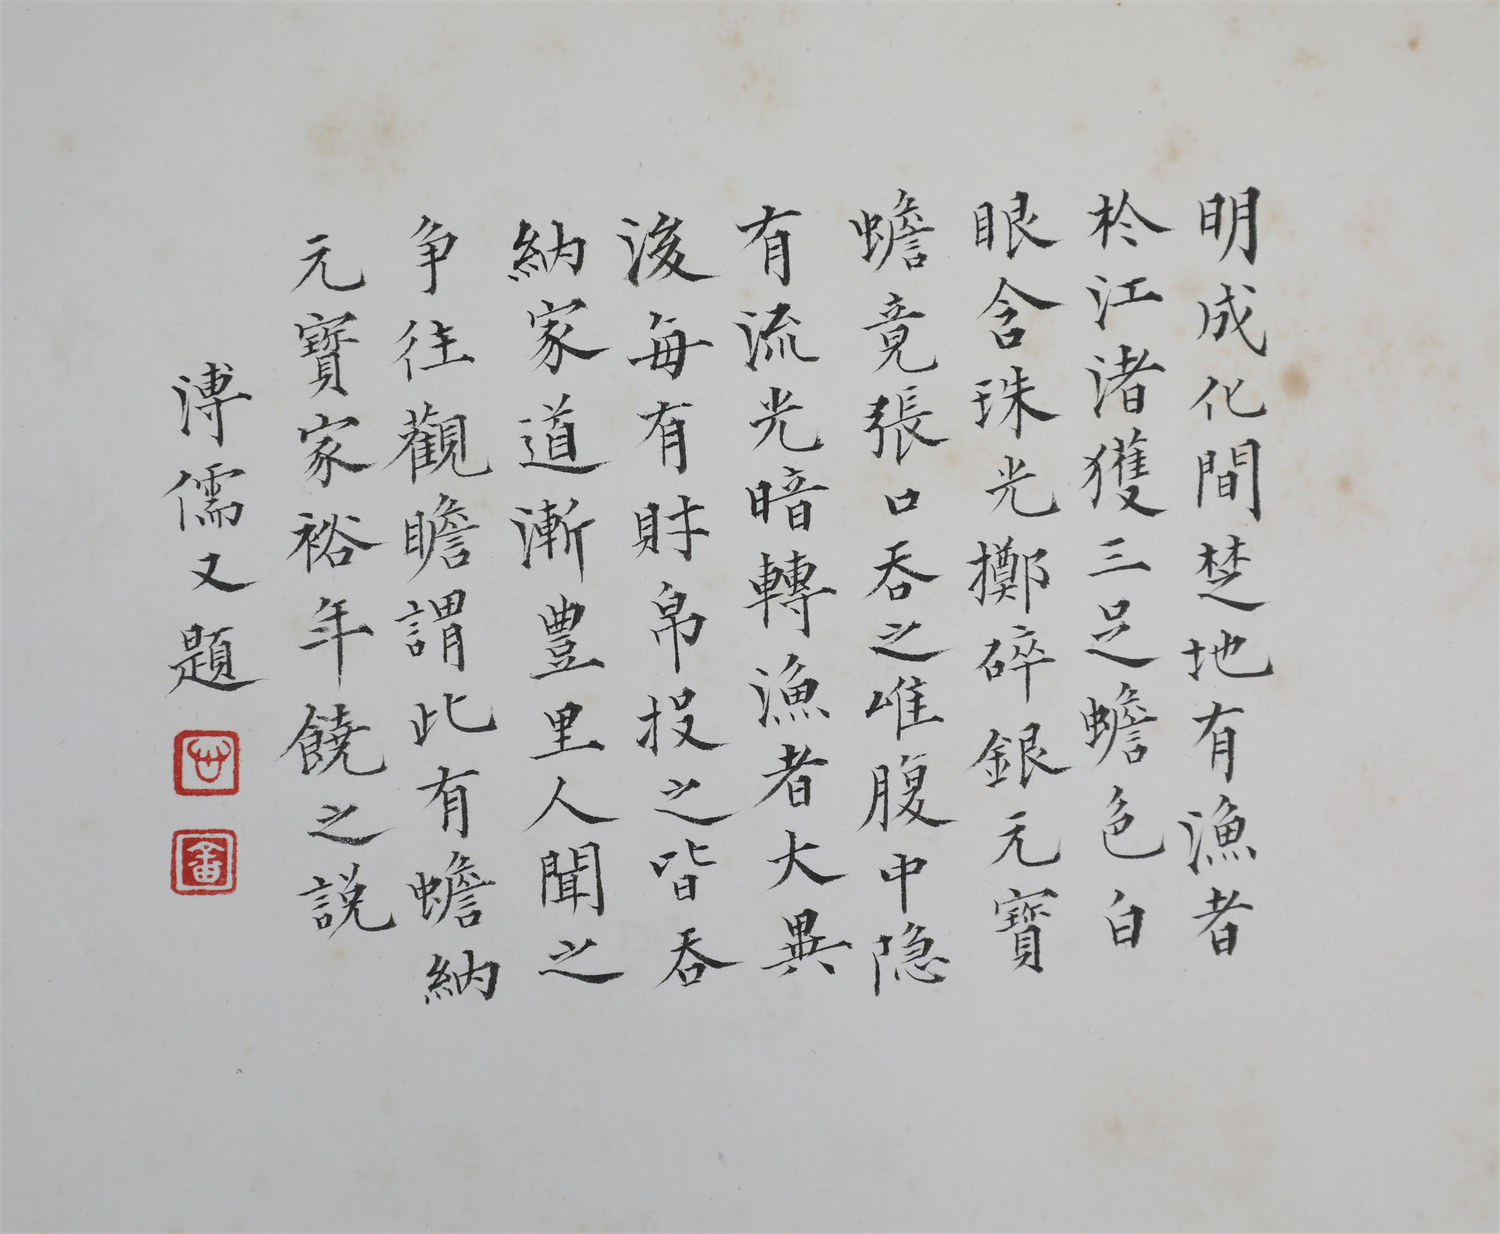 明成化間楚地有漁者
於江渚獲三足蟾色白
眼含珠光擲碎銀元寶
蟾竟張口吞之唯腹中隐
有流光暗轉漁者大異
後每有財帛投之皆吞
納家道漸豊里人聞之
争往觀瞻謂此有蟾納
元寶家裕年饒之説
溥儒又題